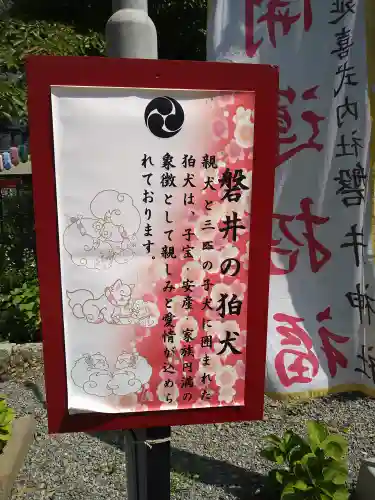 磐井の狛犬
親犬と三匹の子犬に囲まれた
狛犬は、子宝・安産・家族円満の
象徴として親しみと愛情が込めら
れております。
延喜式内社 磐井神社
開運招福